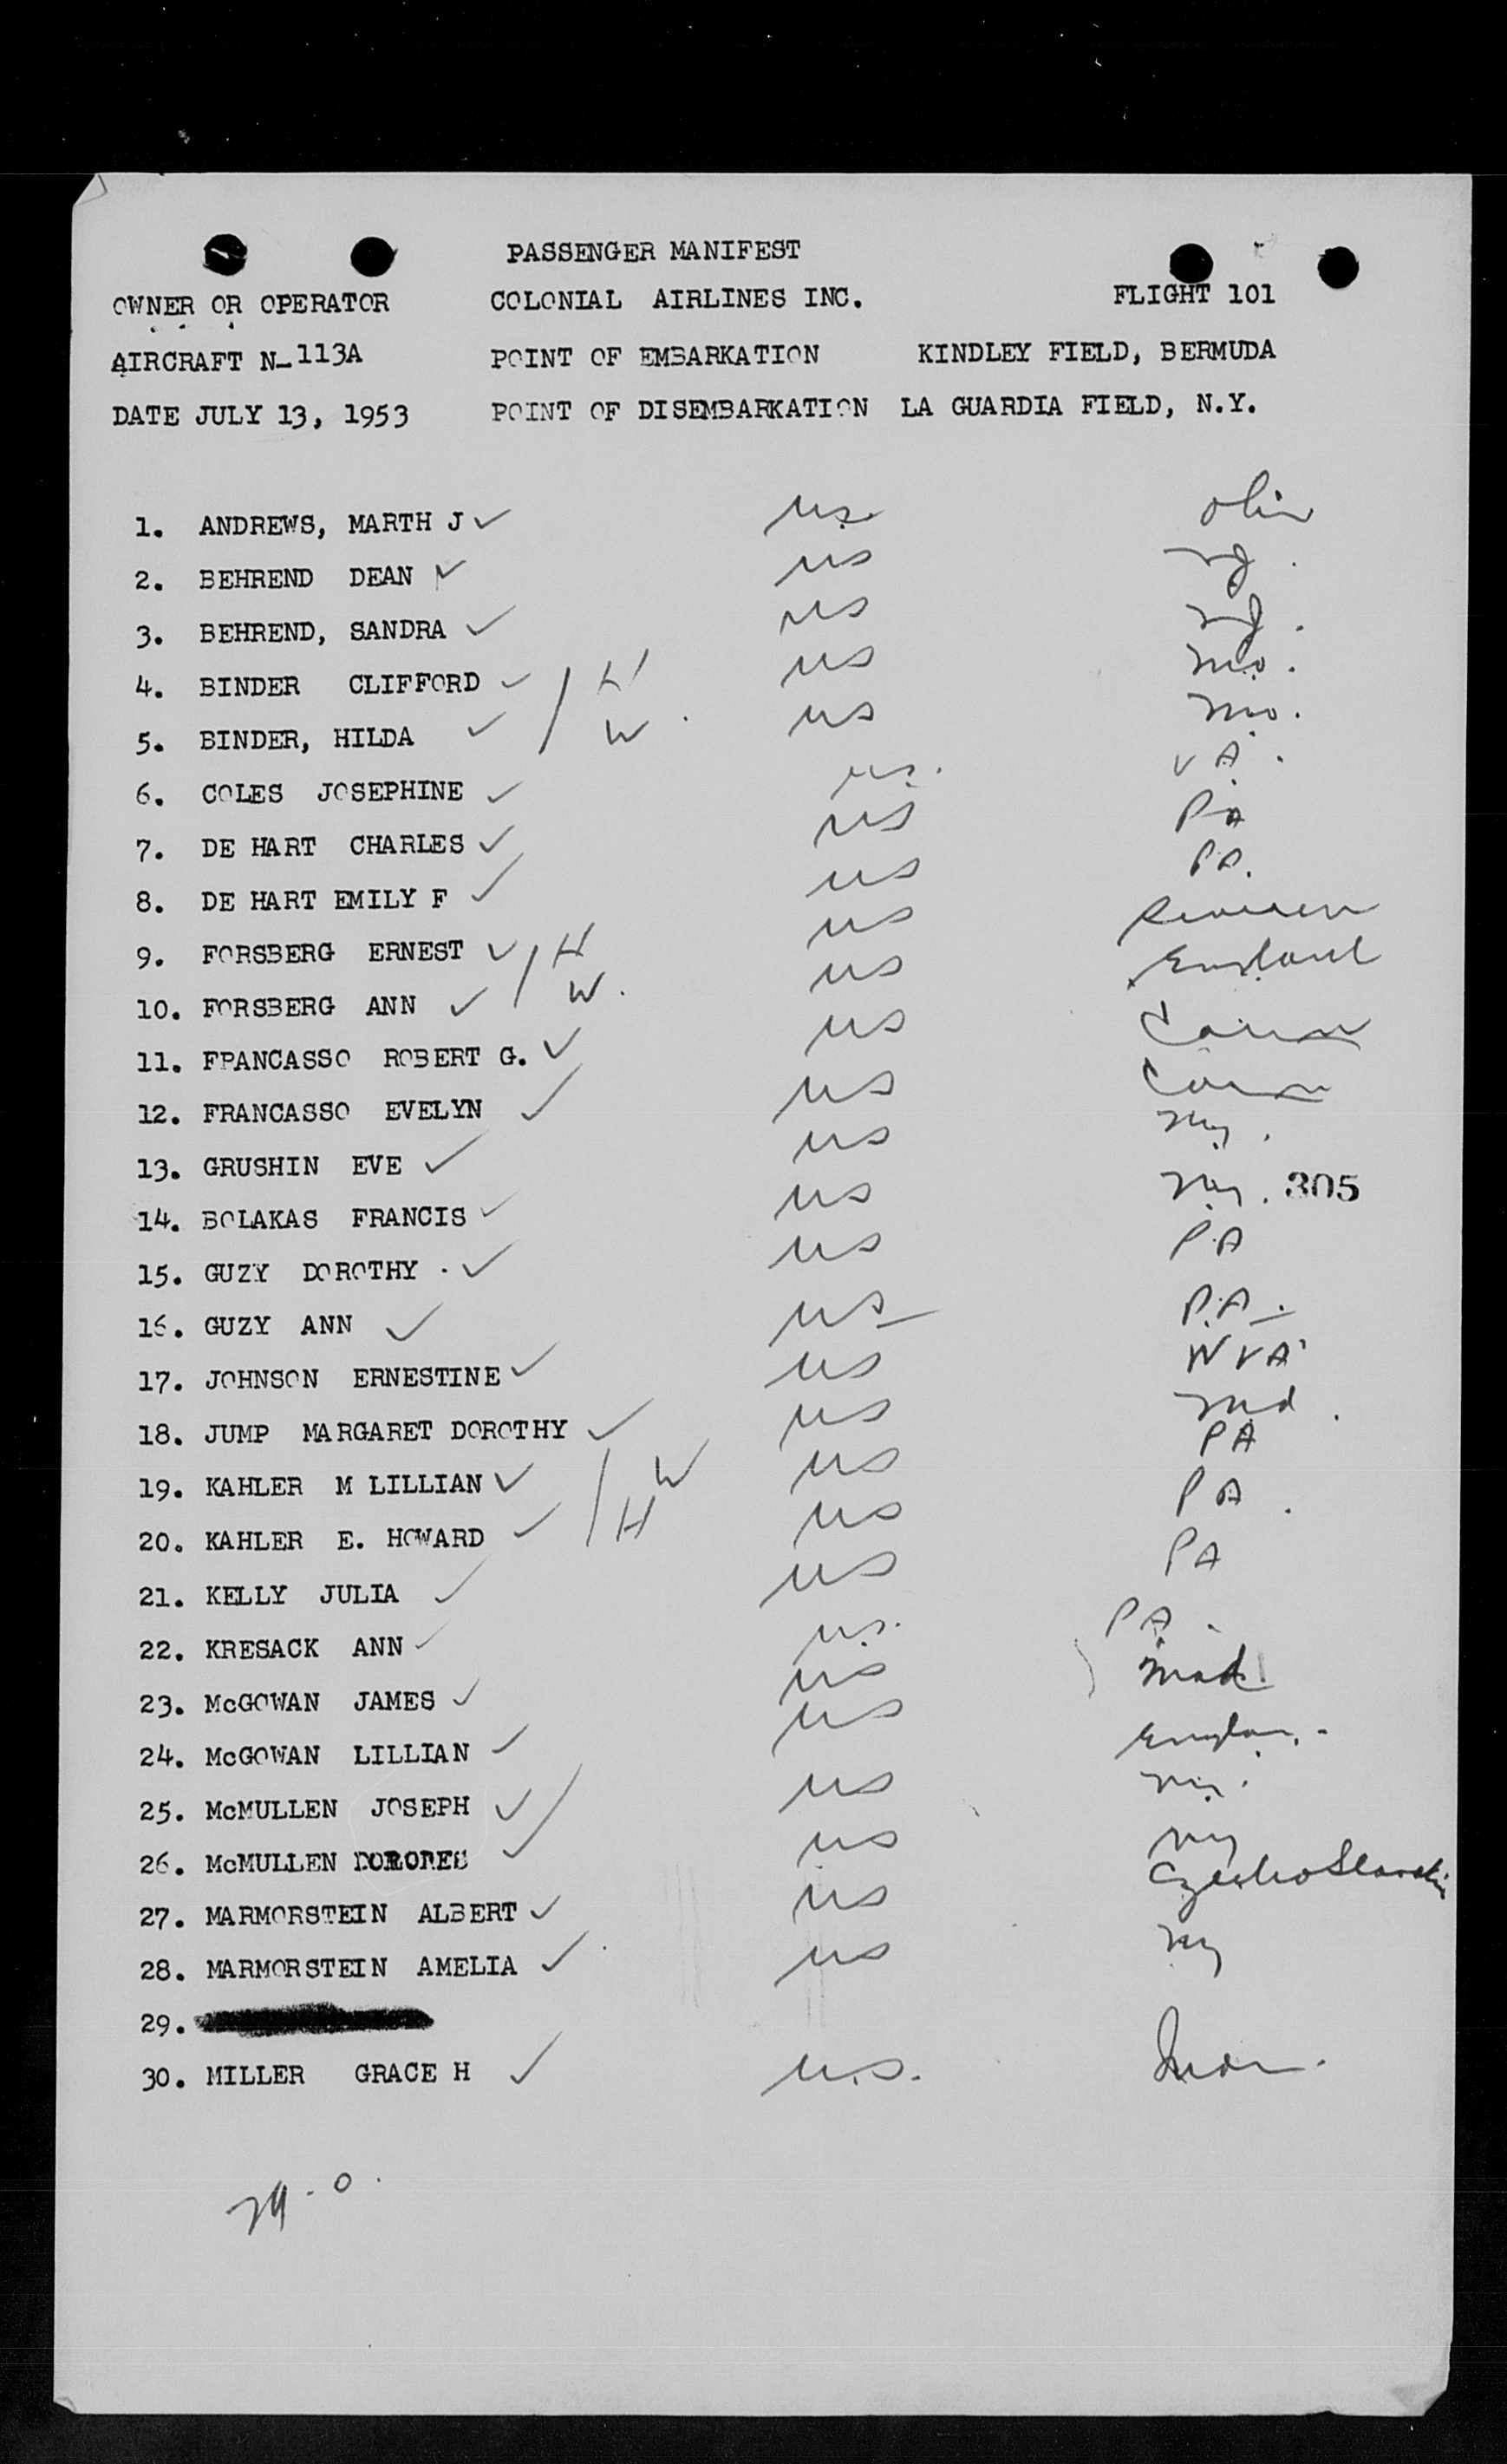 PASSENGER MANIFEST
OWNER OR OPERATOR COLONIAL AIRLINES INC. FLIGHT 101
AIRCRAFT N-113A POINT OF EMBARKATION KINDLEY FIELD, BERMUDA
DATE JULY 13, 1953 POINT OF DISEMBARKATION LA GUARDIA FIELD, N.Y.
1. ANDREWS, MARTH J ✓ us.
2. BEHREND DEAN ✓ us
3. BEHREND, SANDRA ✓ us
4. BINDER CLIFFORD ✓ / H us Mo.
5. BINDER, HILDA ✓ / W. us Mo.
6. COLES JOSEPHINE ✓ us. VA.
7. DE HART CHARLES ✓ us PA
8. DE HART EMILY F ✓ us PA.
9. FORSBERG ERNEST ✓ / H us
10. FORSBERG ANN ✓ / W. us England
11. FPANCASSO ROBERT G. ✓ us Conn
12. FRANCASSO EVELYN ✓ us Conn
13. GRUSHIN EVE ✓ us Ny.
14. BOLAKAS FRANCIS ✓ us Ny. 305
15. GUZY DOROTHY . ✓ us PA
16. GUZY ANN ✓ us P.A.
17. JOHNSON ERNESTINE ✓ us W VA
18. JUMP MARGARET DOROTHY ✓ us Md.
19. KAHLER M LILLIAN ✓ / W us PA
20. KAHLER E. HOWARD ✓ / H us PA.
21. KELLY JULIA ✓ us PA
22. KRESACK ANN ✓ us. PA.
23. McGOWAN JAMES ✓ us
24. McGOWAN LILLIAN ✓ us
25. McMULLEN JOSEPH ✓ / us Ny.
26. McMULLEN ✓ us Ny
27. MARMORSTEIN ALBERT ✓ us CzechoSlovakia
28. MARMORSTEIN AMELIA ✓ us Ny
29.
30. MILLER GRACE H ✓ u.s.
29-0.